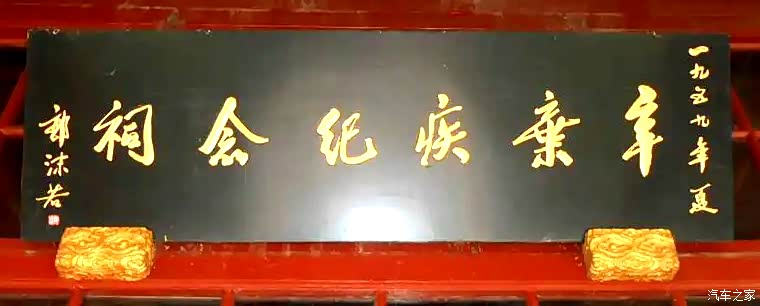 一九五九年夏
辛棄疾纪念祠
郭沫若
汽车之家